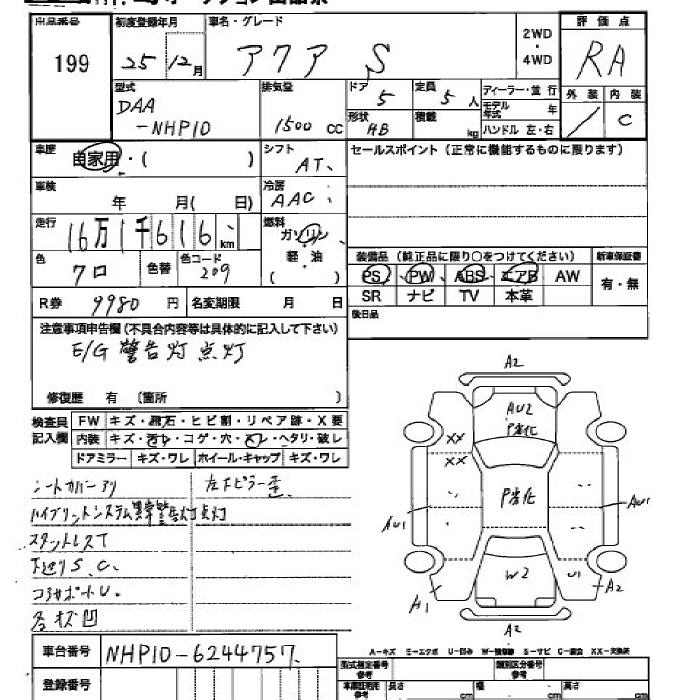 出品番号
199
初度登録年月
25 12月
車名・グレード
アクア S
2WD
・
4WD
評価点
RA
外装 内装
／ C
型式
DAA
-NHP10
排気量
1500 CC
ドア
5
定員
5 人
形状
HB
積載
kg
ディーラー・並行
モデル年式 年
ハンドル 左・右
車歴
自家用・( )
シフト
AT、
セールスポイント (正常に機能するものに限ります)
車検
年 月( 日)
冷房
AAC、
走行
16万1千616、km
燃料
ガソリン
軽・油
( )
色
クロ
色替
色コード
209
装備品 (純正品に限り○をつけてください)
新車保証書
PS PW ABS エアB AW
有・無
SR ナビ TV 本革
R券 9980 円
名変期限 月 日
後日品
注意事項申告欄 (不具合内容等は具体的に記入して下さい)
E/G 警告灯点灯
修復歴 有 〔箇所 〕
検査員
記入欄
FW キズ・飛石・ヒビ割・リペア跡・X要
内装 キズ・汚レ・コゲ・穴・スレ・ヘタリ・破レ
ドアミラー キズ・ワレ ホイール・キャップ キズ・ワレ
シートカバーアリ
左下ピラー歪
ハイブリットシステム異常警告灯点灯
スタットレスT
下廻りS、C、
コアサポートU、
各キズ凹
A2
AU2
P劣化
XX
XX
P劣化
AU1
AU1
W2
U1
A2
A1
A2
車台番号 NHP10-6244757.
登録番号
A-キズ E-エクボ U-凹み W-補修跡 S-サビ C-腐食 XX-交換済
型式指定番号
参考
類別区分番号
参考
長さ cm
幅 cm
高さ cm